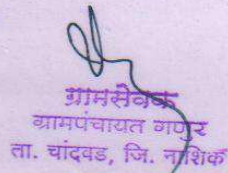 ग्रामसेवक
ग्रामपंचायत गणुर
ता. चांदवड, जि. नाशिक